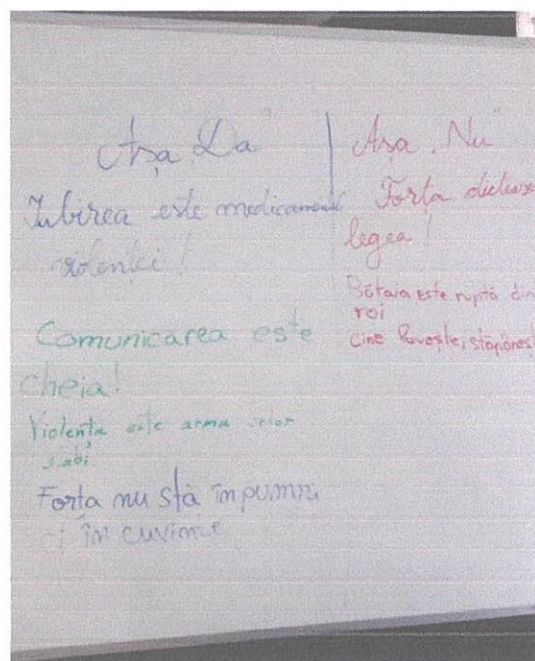 Așa Da
Iubirea este medicamentul
violenței!
Comunicarea este
cheia!
Violența este arma celor
slabi
Forța nu stă în pumni
ci în cuvinte
Așa Nu
Forța dictează
legea!
Bătaia este ruptă din
roi
cine lovește, stăpânește